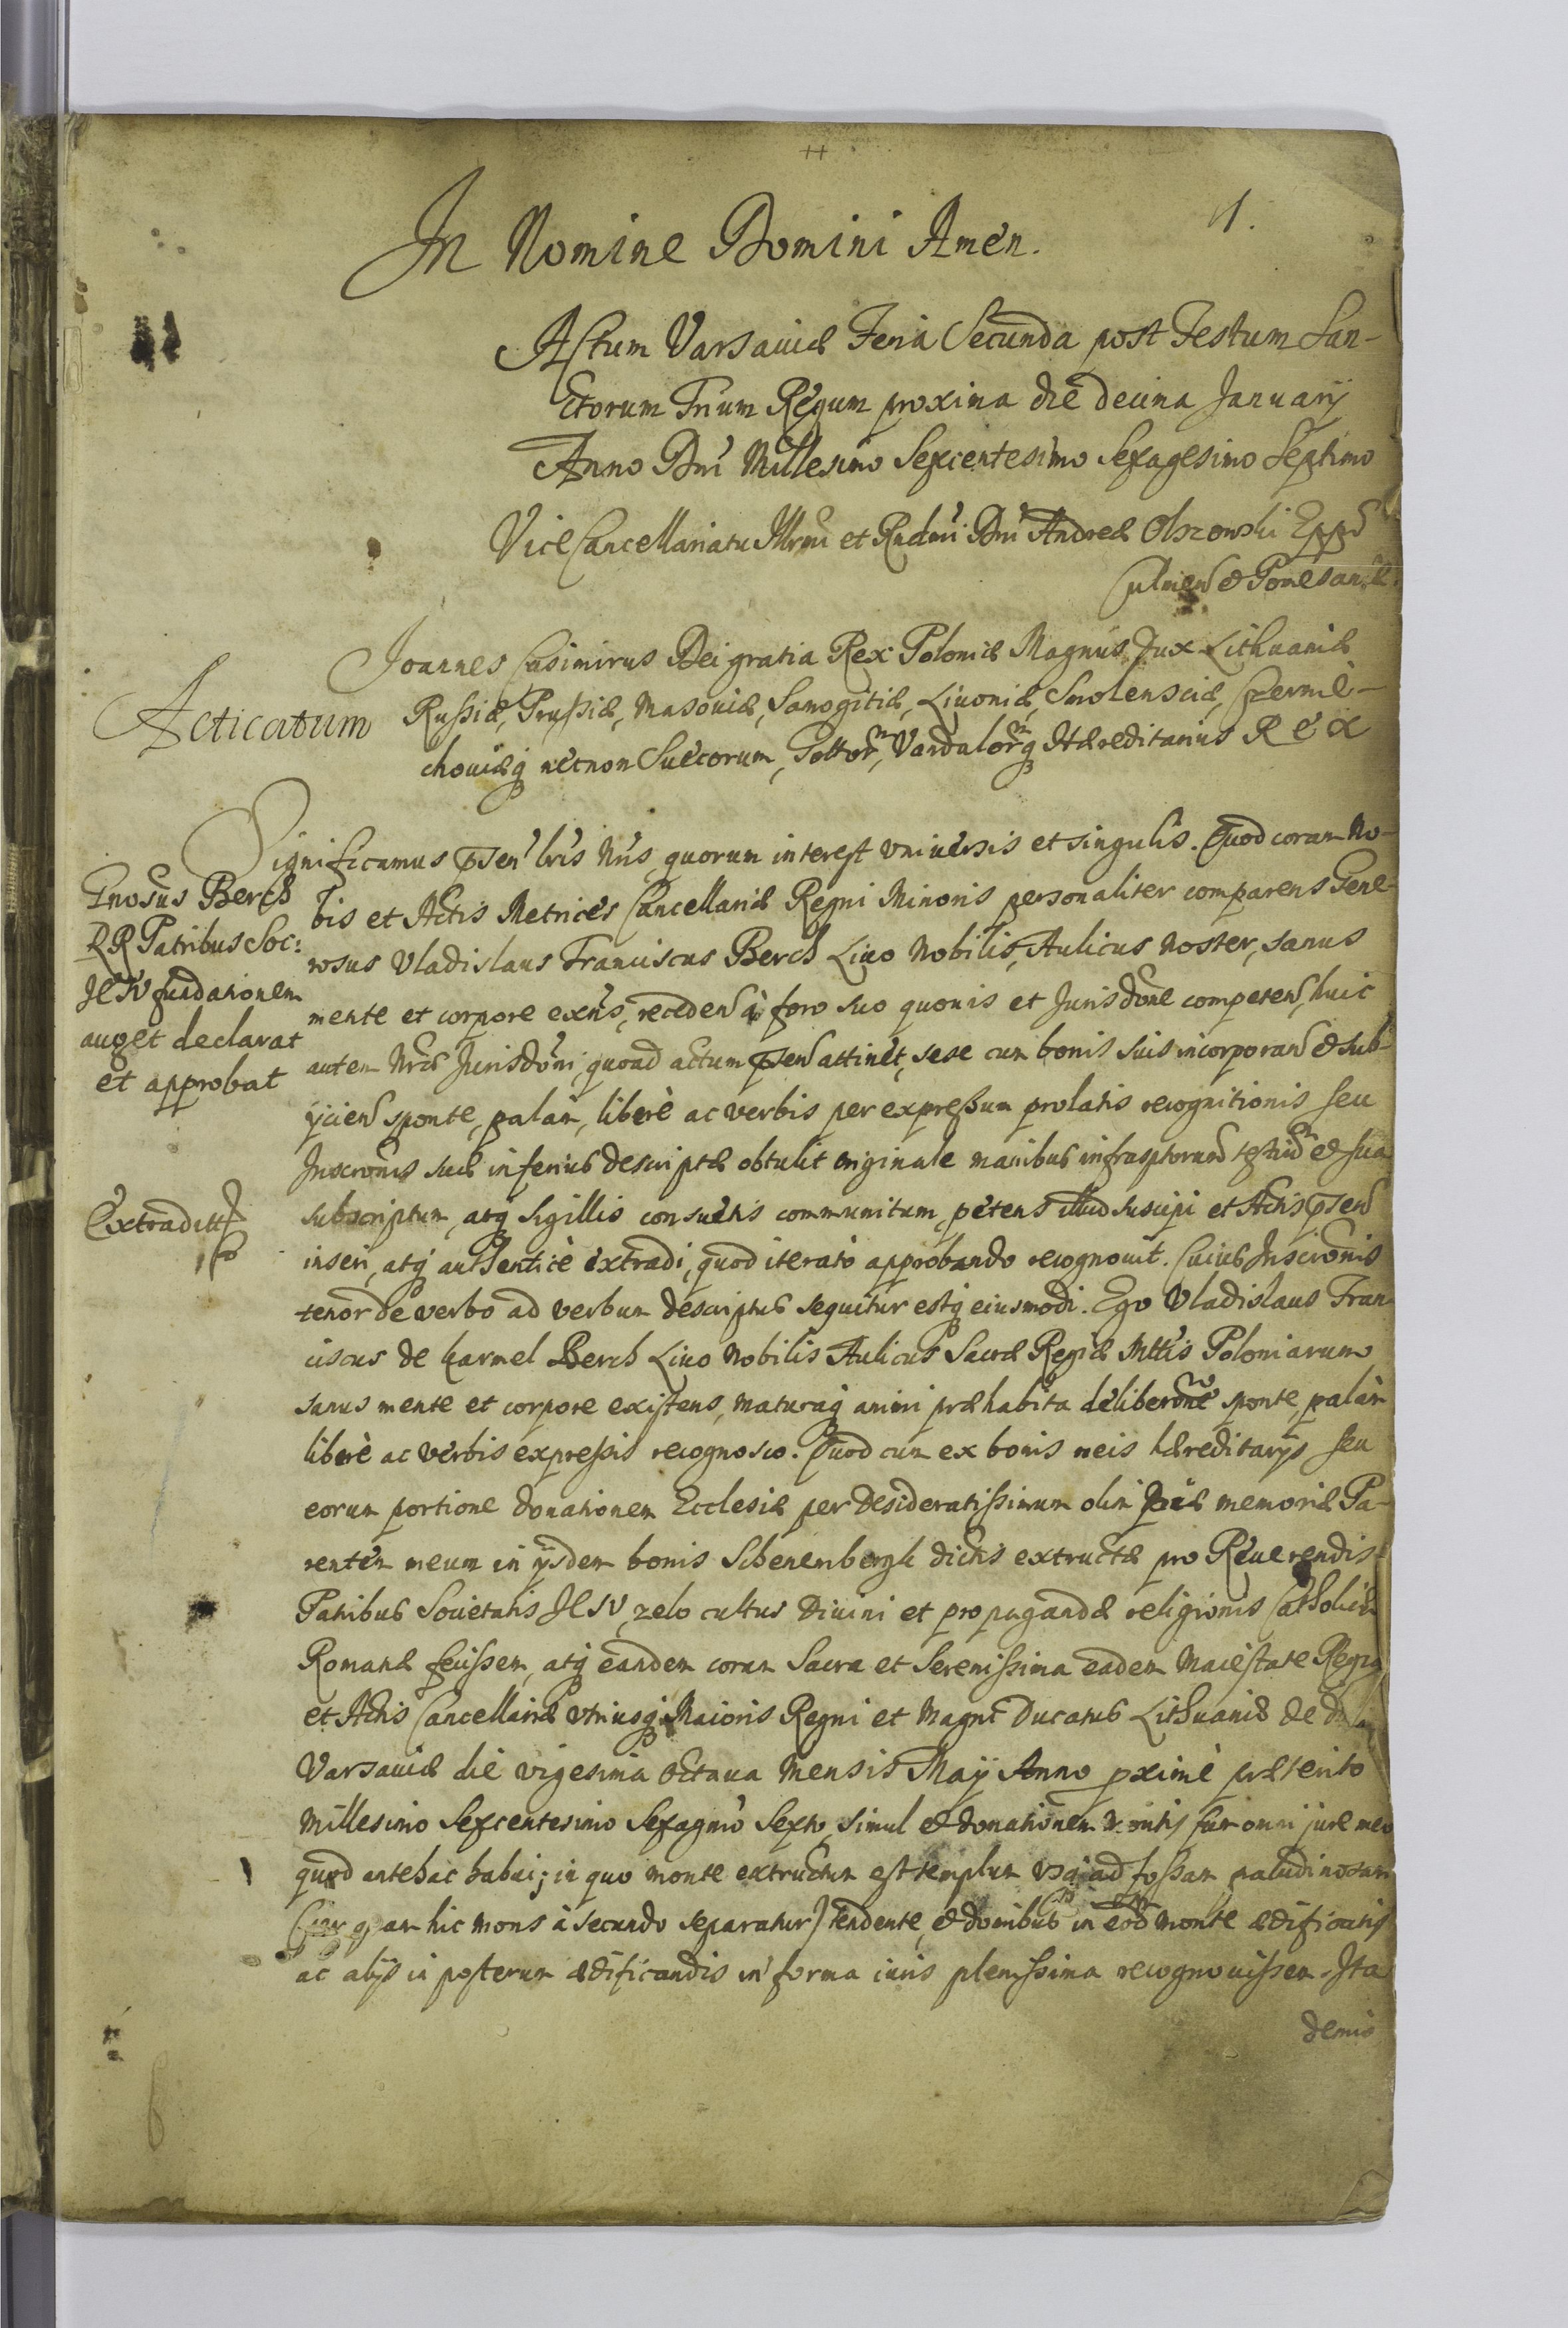 1.
In Nomine Domini Amen.
Actum Varsaviæ Feria Secunda post Festum San-
ctorum Trium Regum proxima die decima Januarij
Anno Dni Millesimo Sexcentesimo Sexagesimo Septimo
ViceCancellariatu Illrmi et Rndmi Dni Andreæ Olszowski Eppi
Culmen et Pomesaniæ
Acticatum
Joannes Casimirus Dei gratia Rex Poloniæ Magnus Dux Lithuaniæ
Russiæ, Prussiæ, Masoviæ, Samogitiæ, Livoniæ, Smolensciæ, Czernie-
choviæq necnon Suecorum, Gottorm, Vandalormq Hæreditarius Rex
Gnosus Berch
RR Patribus Soc:
JESV fundationem
auget declarat
et approbat
Significamus psen lris Nris, quorum interest vniuersis et singulis. Quod coram No-
bis et Actis Metrices Cancellariæ Regni Minoris personaliter comparens Gene-
rosus Vladislaus Franciscus Berch Liuo Nobilis, Aulicus Noster, sanus
mente et corpore exns, receden à foro suo quouis et Jurisdone competen, huic
autem Nræ Jurisdoni, quoad actum psen attinet, sese cum bonis suis incorporan et sub-
ijcien sponte, palam, liberè ac verbis per expressum prolatis recognitionis seu
Inscronis suæ inferius descriptæ obtulit originale manibus infrasptorum testium et sua
Extraditt
subscriptum, atq sigillis consuetis communitum, petens illud suscipi et Actis psen
inseri, atq authenticè extradi, quod iterato approbando recognouit. Cuius Inscronis
tenor de verbo ad verbum descriptus sequitur estq eiusmodi. Ego Vladislaus Fran
ciscus de Karmel Berch Liuo Nobilis Aulicus Sacræ Regiæ Mttis Poloniarum,
sanus mente et corpore existens, maturaq animi præhabita deliberone sponte, palàm
liberè ac verbis expressis recognosco. Quod cum ex bonis meis hæreditarijs seu
eorum portione donationem Ecclesiæ per desideratissimum olim piæ memoriæ Pa-
rentem meum in ijsdem bonis Schenenbergk dictis extructæ pro Reuerendis
Patribus Societatis JESV, zelo cultus Diuini et propagandæ religionis Catholicæ
Romanæ fecissem, atq eandem coram Sacra et Serenissima eadem Maiestate Regia
et Actis Cancellariæ vtriusq Maioris Regni et Magni Ducatus Lithuaniæ de
Varsauiæ die vigesima octaua Mensis Maij Anno pximè præterito
Millesimo Sexcentesimo Sexagmo Sexto, simul et donationem montis cum omni jure meo
quod antehac habui; in quo monte extructum est templum vsq ad fossam paludinosam
(per quam hic mons à secundo separatur) tendente, et domibus in eod monte ædificatis
ac alijs in posterum ædificandis in forma iuris plenissima recognouissem. Ita
demis